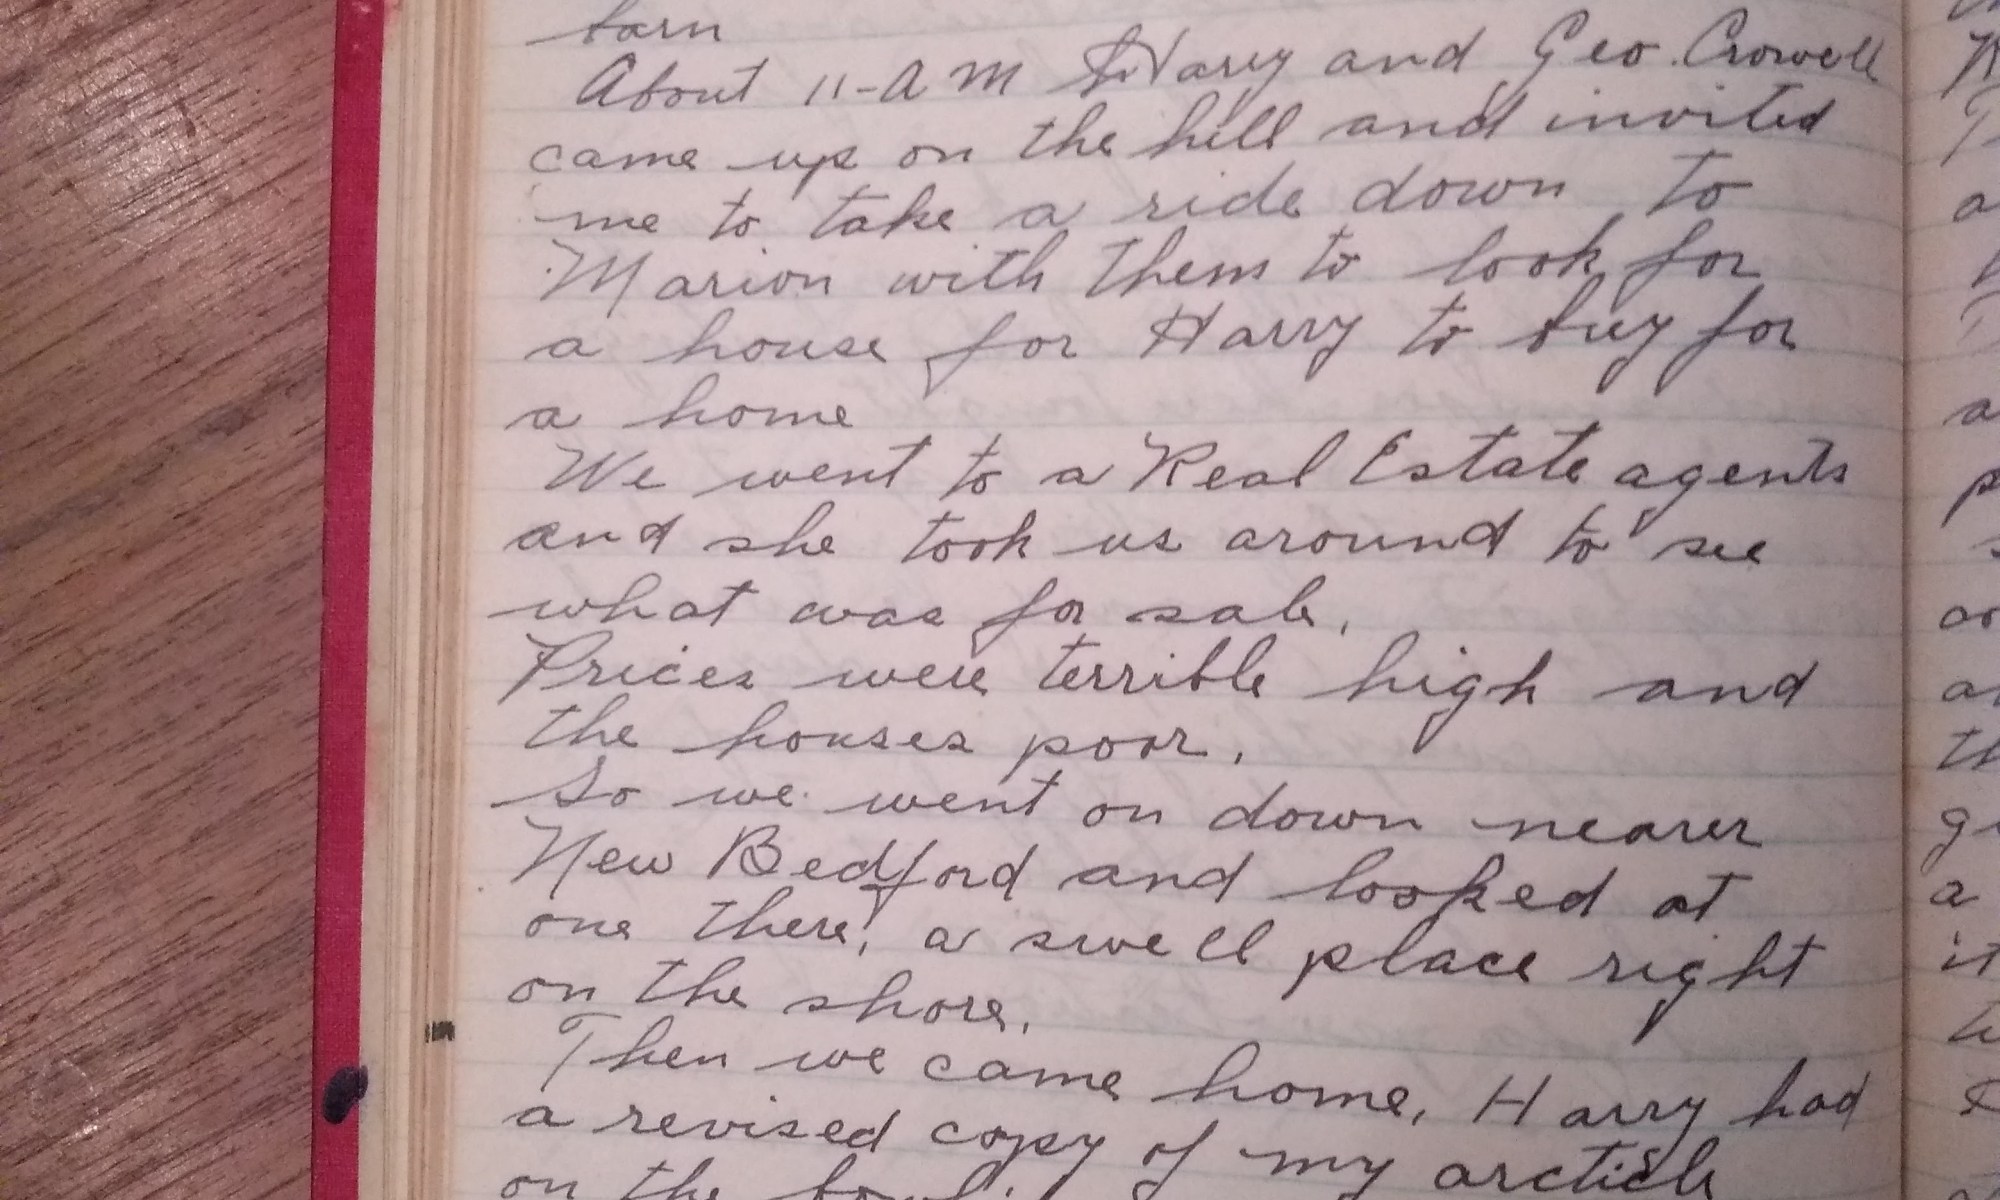 barn
About 11-AM Harry and Geo. Crowell
came up on the hill and invited
me to take a ride down to
Marion with them to look for
a house for Harry to buy for
a home
We went to a Real Estate agents
and she took us around to see
what was for sale.
Prices were terrible high and
the houses poor.
So we went on down nearer
New Bedford and looked at
one there, a swell place right
on the shore.
Then we came home, Harry had
a revised copy of my arcticle
on the